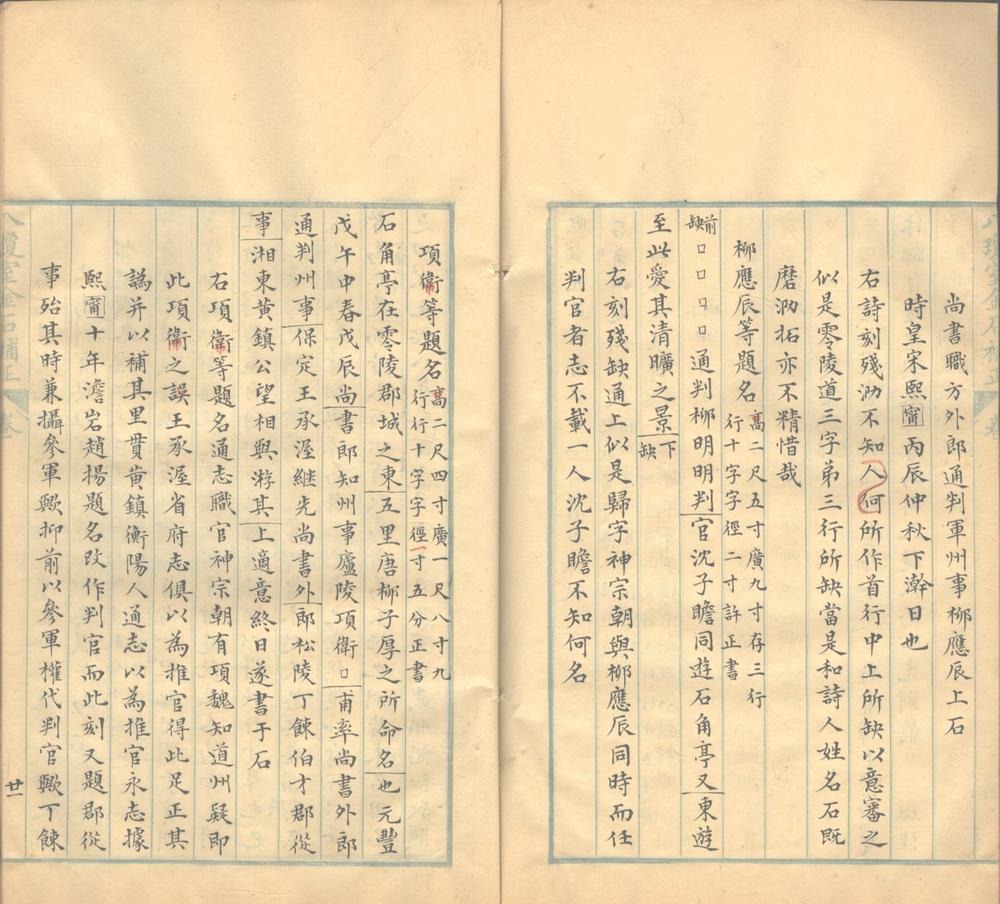 尚書職方外郎通判軍州事柳應辰上石
時皇宋熙甯丙辰仲秋下澣日也
右詩刻殘泐不知人何所作首行中上所缺以意審之
似是零陵道三字弟三行所缺當是和詩人姓名石既
磨泐拓亦不精惜哉
柳應辰等題名高二尺五寸廣九寸存三行行十字字徑二寸許正書
前缺□□□□通判柳明明判官沈子瞻同遊石角亭又東遊
至此愛其清曠之景下缺
右刻殘缺通上似是歸字神宗朝與柳應辰同時而任
判官者志不載一人沈子瞻不知何名
項衞等題名高二尺四寸廣一尺八寸九行行十字字徑一寸五分正書
石角亭在零陵郡城之東五里唐柳子厚之所命名也元豐
戊午中春戊辰尚書郎知州事廬陵項衞□甫率尚書外郎
通判州事保定王承渥継先尚書外郎松陵丁餗伯才郡從
事湘東黃鎮公望相與游其上適意終日遂書于石
右項衞等題名通志職官神宗朝有項魏知道州疑即
此項衞之誤王承渥省府志俱以為推官得此足正其
譌并以補其里貫黃鎮衡陽人通志以為推官永志據
熙甯十年澹岩趙揚題名改作判官而此刻又題郡從
事殆其時兼攝參軍歟抑前以參軍權代判官歟丁餗
廿一